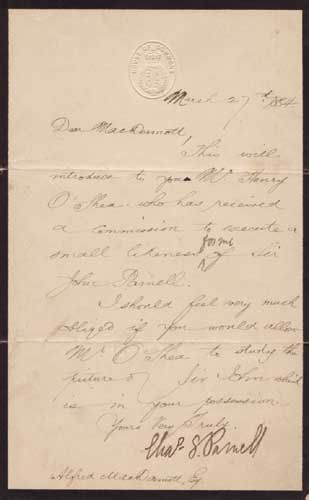 HOUSE OF COMMONS
March 27th 1884
Dear MacDermott,
This will
introduce to you Mr Henry
O'Shea who has received
a commission to execute a
for me
small likeness of Sir
John Parnell.
I should feel very much
obliged if you would allow
Mr O'Shea to study the
picture of Sir John which
is in your possession
Yours Very Truly
Chas. S. Parnell
Alfred MacDermott, Esq